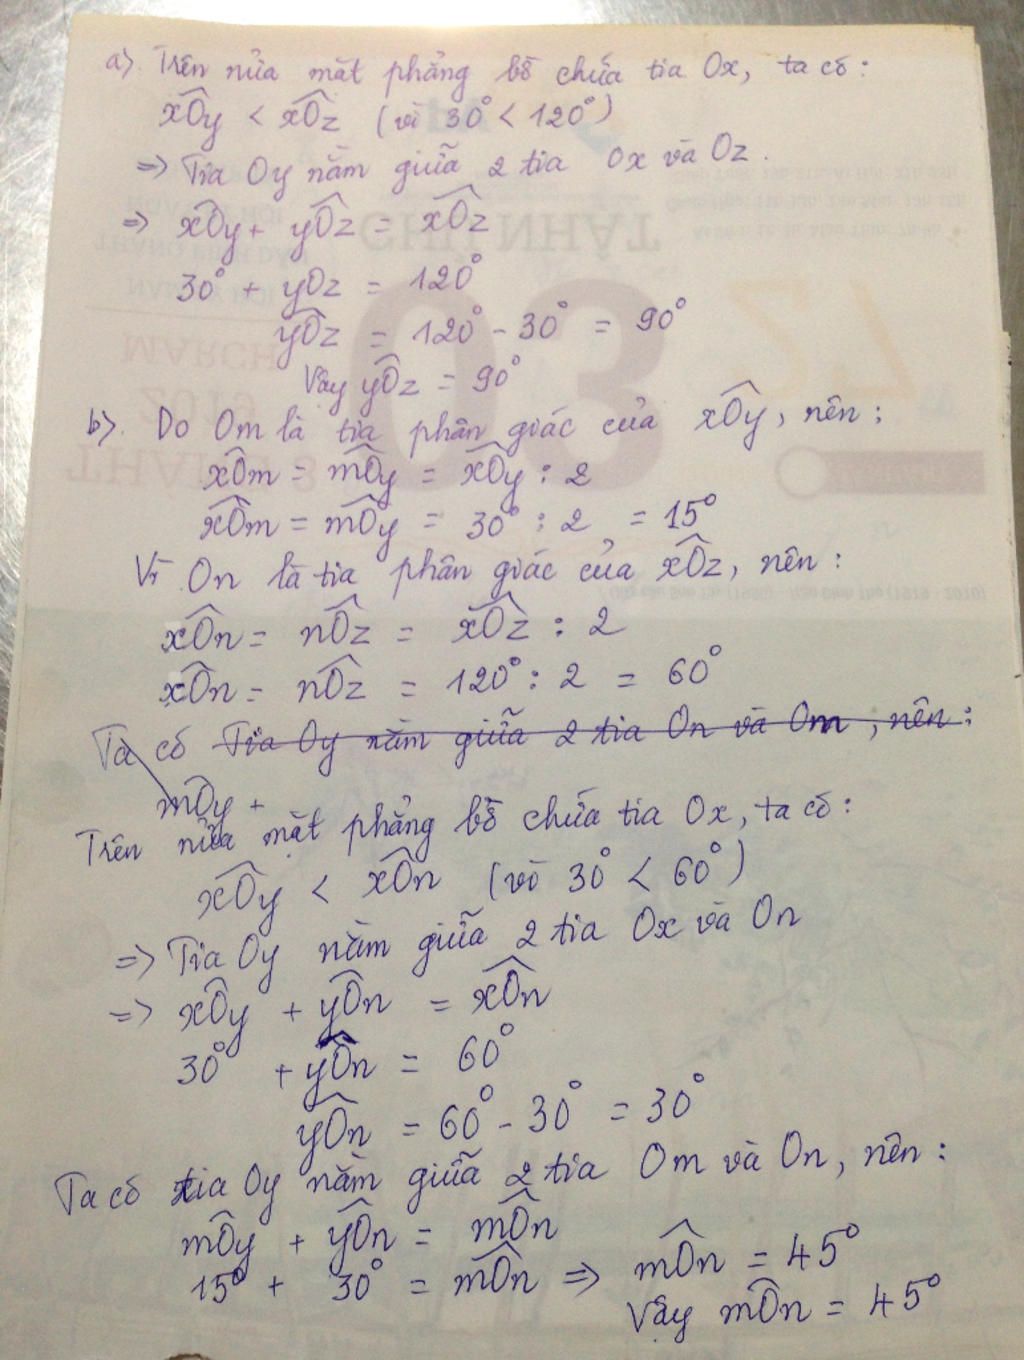 a) Trên nửa mặt phẳng bờ chứa tia Ox, ta có:
xÔy < xÔz (vì 30° < 120°)
=> Tia Oy nằm giữa 2 tia Ox và Oz.
=> xÔy + yÔz = xÔz
30° + yOz = 120°
yÔz = 120° - 30° = 90°
Vậy yÔz = 90°
b) Do Om là tia phân giác của xÔy, nên:
xÔm = mÔy = xÔy : 2
xÔm = mÔy = 30° : 2 = 15°
Vì On là tia phân giác của xÔz, nên:
xÔn = nÔz = xÔz : 2
xÔn = nÔz = 120° : 2 = 60°
Ta có Tia Oy nằm giữa 2 tia On và Om, nên:
mÔy +
Trên nửa mặt phẳng bờ chứa tia Ox, ta có:
xÔy < xÔn (vì 30° < 60°)
=> Tia Oy nằm giữa 2 tia Ox và On
=> xÔy + yÔn = xÔn
30° + yÔn = 60°
yÔn = 60° - 30° = 30°
Ta có tia Oy nằm giữa 2 tia Om và On, nên:
mÔy + yÔn = mÔn
15° + 30° = mÔn => mÔn = 45°
Vậy mÔn = 45°
CHỦ NHẬT
03
MARCH
2019